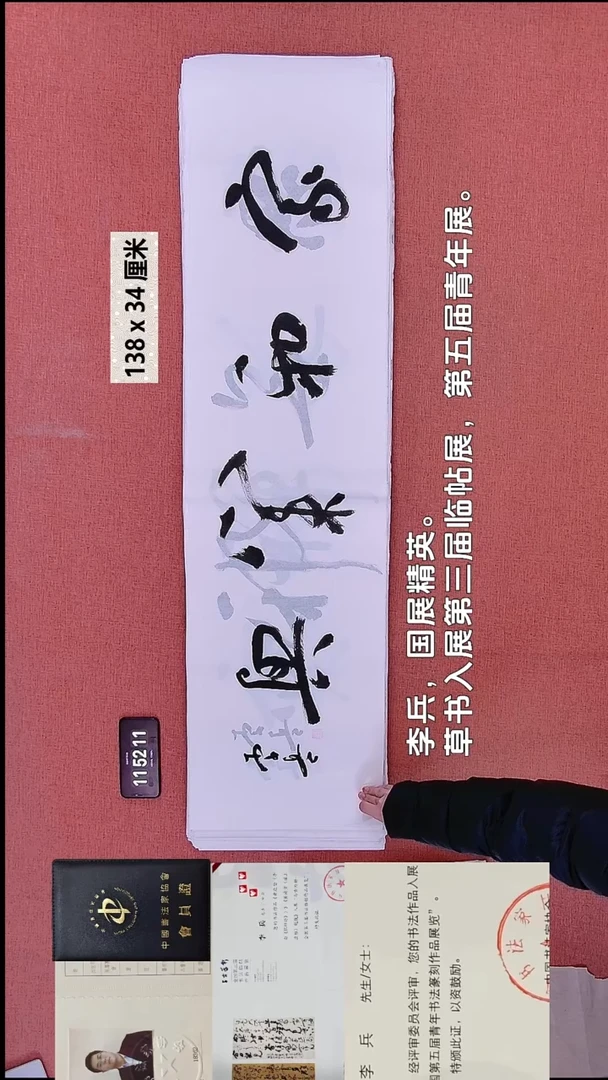 138 x 34 厘米
115211
家和業興
李兵
李兵，国展精英。
草书入展第三届临帖展，第五届青年展。
中國書法家協會
會員證
李 兵 先生/女士：
经评审委员会评审，您的书法作品入展
国第五届青年书法篆刻作品展览”。
特颁此证，以资鼓励。